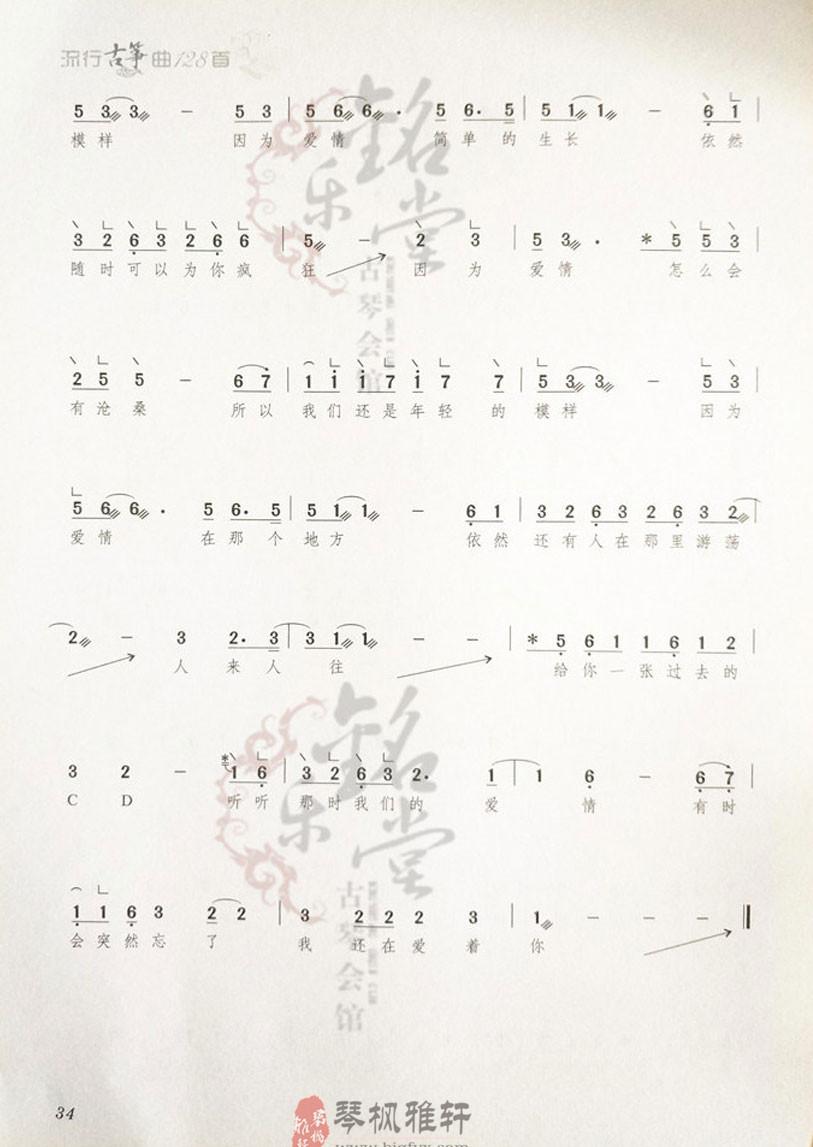 流行古筝曲128首
5 3 3 — 5 3 | 5 6 6 · 5 6· 5 | 5 1 1 — 6 1 |
模样 因为 爱情 简单的生长 依然
3 2 6 3 2 6 6 | 5 — 2 3 | 5 3 · * 5 5 3 |
随时可以为你疯 狂 因 为 爱情 怎么会
2 5 5 — 6 7 | 1 1 1 7 1 7 7 | 5 3 3 — 5 3
有沧桑 所以 我们还是年轻 的 模样 因为
5 6 6 · 5 6· 5 | 5 1 1 — 6 1 | 3 2 6 3 2 6 3 2 |
爱情 在那个 地方 依然 还有人在那里游荡
2 — 3 2· 3 | 3 1 1 — — | * 5 6 1 1 6 1 2 |
人 来人 往 给你一张过去的
3 2 — 1 6 | 3 2 6 3 2· 1 | 1 6 — 6 7 |
C D 听听 那时我们的 爱 情 有时
1 1 6 3 2 2 | 3 2 2 2 3 | 1 — — —
会突然忘 了 我 还在爱着 你
34
铭
乐
堂
古琴会馆
铭
乐
堂
古琴会馆
琴枫雅轩